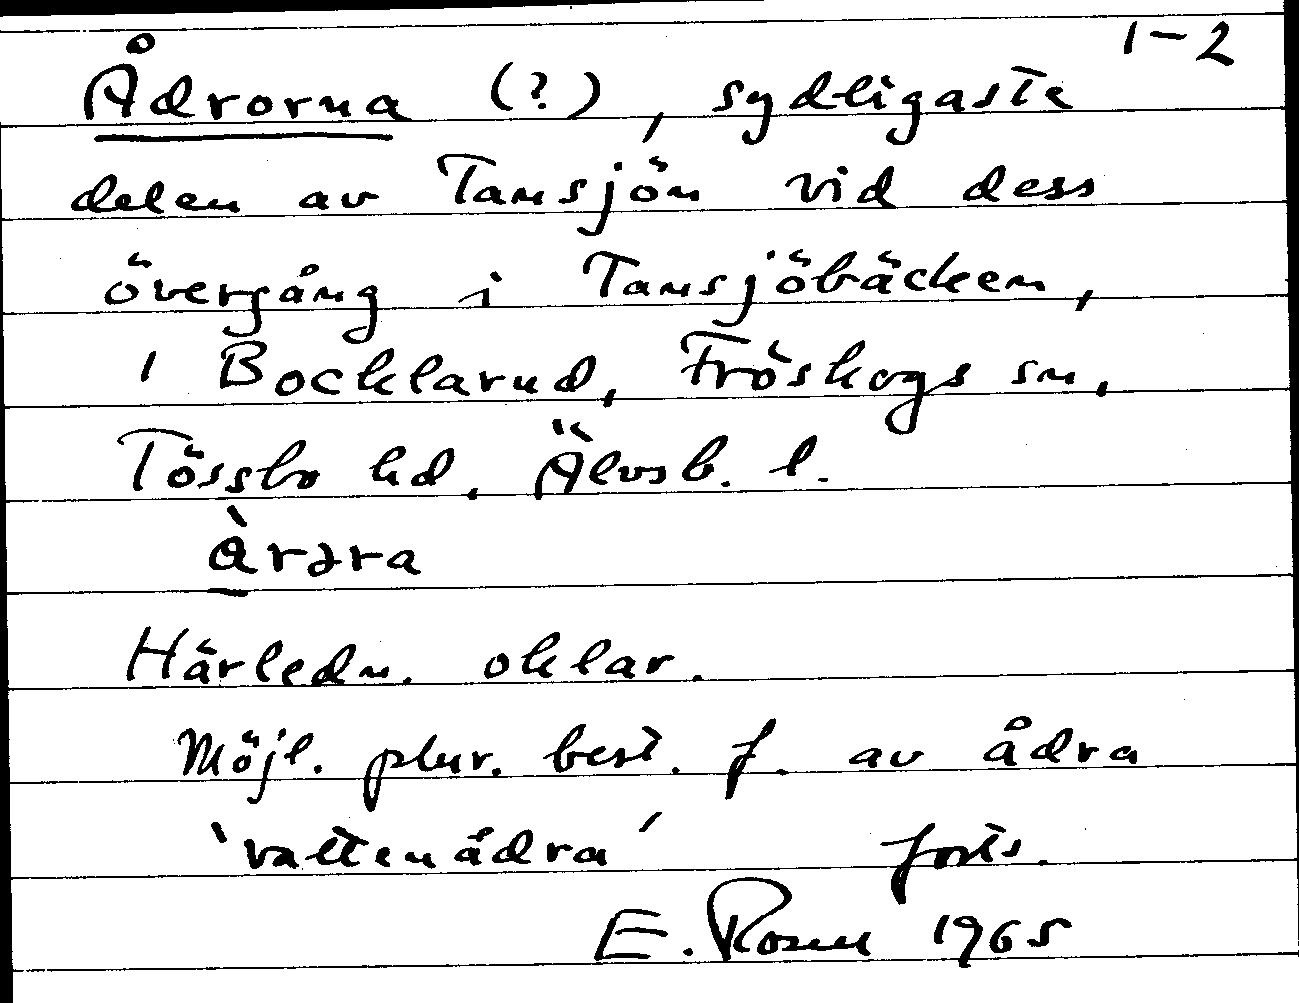 1-2
Ådrorna (?), sydligaste
delen av Tansjön vid dess
övergång i Tansjöbäcken,
1 Bocklarud, Fröskogs sn,
Tössbo hd, Älvsb. l.
àrəra
Härledn. oklar.
Möjl. plur. best. f. av ådra
'vattenådra' forts.
E. Rosén 1965